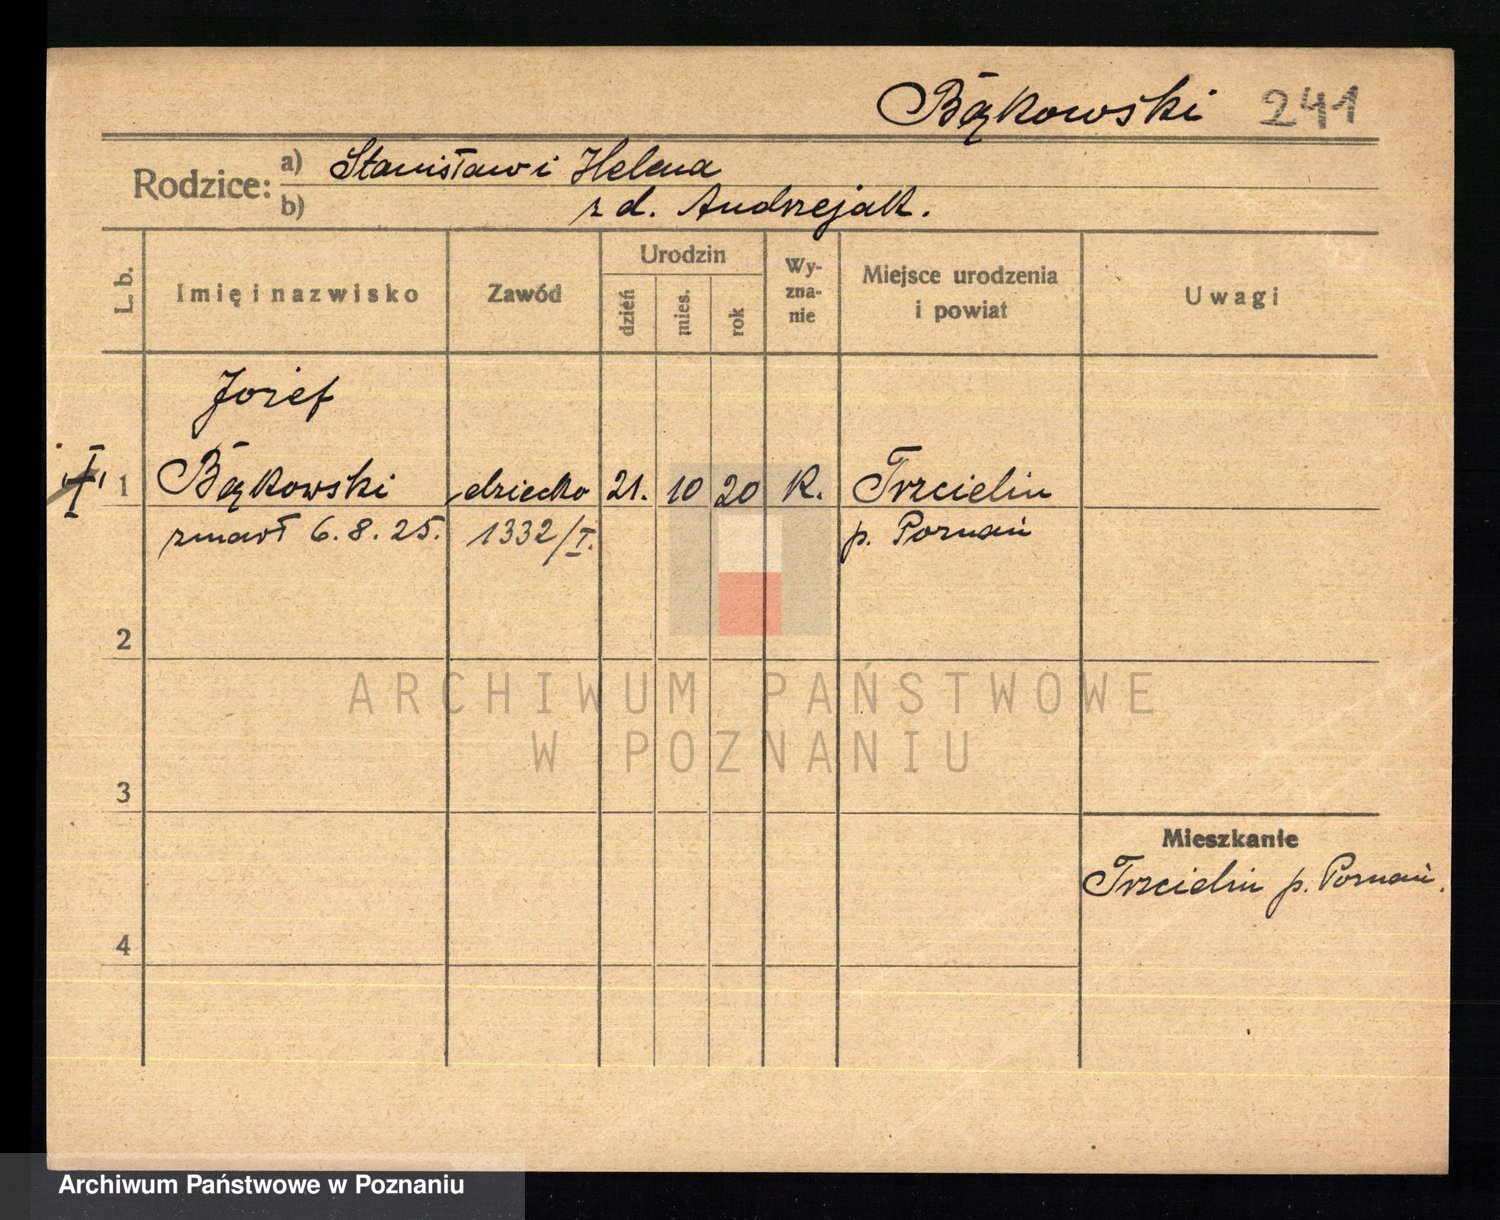 Bąkowski 241
Rodzice: a) Stanisław i Helena
b) z d. Andrzejak.
L. b.
Imię i nazwisko
Zawód
Urodzin
dzień
mies.
rok
Wy-
zna-
nie
Miejsce urodzenia
i powiat
Uwagi
Józef
1 Bąkowski dziecko 21. 10 20 K. Trzcielin
zmarł 6.8.25. 1332/I. p. Poznań
2
3
4
Mieszkanie
Trzcielin p. Poznań.
ARCHIWUM PAŃSTWOWE
W POZNANIU
Archiwum Państwowe w Poznaniu